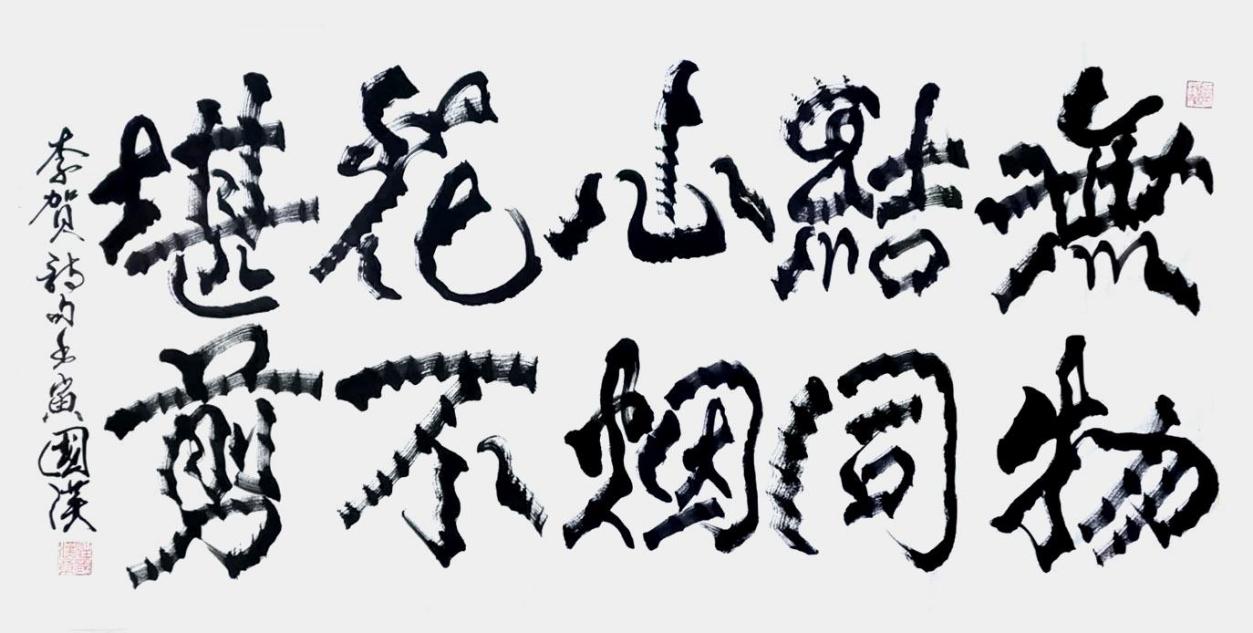 無物
結同
心烟
花不
堪剪
李賀詩句壬寅國漢